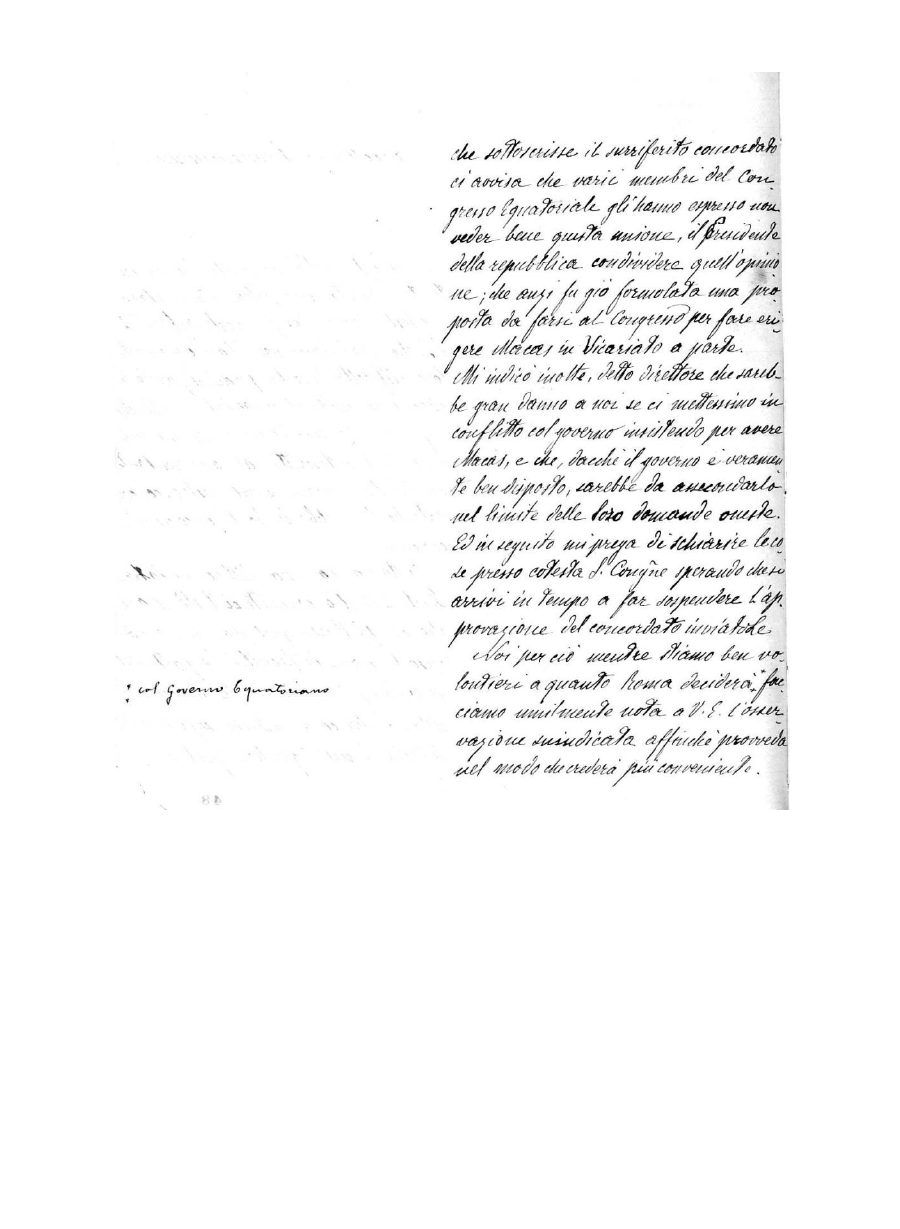 che sottoscrisse il surriferito concordato
ci avvisa che varii membri del Con-
gresso Equatoriale gli hanno espresso non
veder bene questa unione, il Presidente
della repubblica condividere quell'opinio
ne; che anzi fu già formolata una pro-
posta da farsi al Congresso per fare eri-
gere Macas in Vicariato a parte.
Mi indicò inoltre, detto direttore che sareb-
be gran danno a noi se ci mettessimo in
conflitto col governo insistendo per avere
Macas, e che, dacchè il governo è veramen
te ben disposto, sarebbe da assecondarlo
nel limite delle loro domande oneste.
Ed in seguito mi prega di schiarire le co-
se presso cotesta S. Congne sperando che si
arrivi in tempo a far sospendere l'ap-
provazione del concordato inviatole
Noi per ciò mentre stiamo ben vo-
lontieri a quanto Roma deciderà * fac-
* col Governo Equatoriano
ciamo umilmente nota a V. E. l'osser-
vazione suindicata affinchè provveda
nel modo che crederà più conveniente.